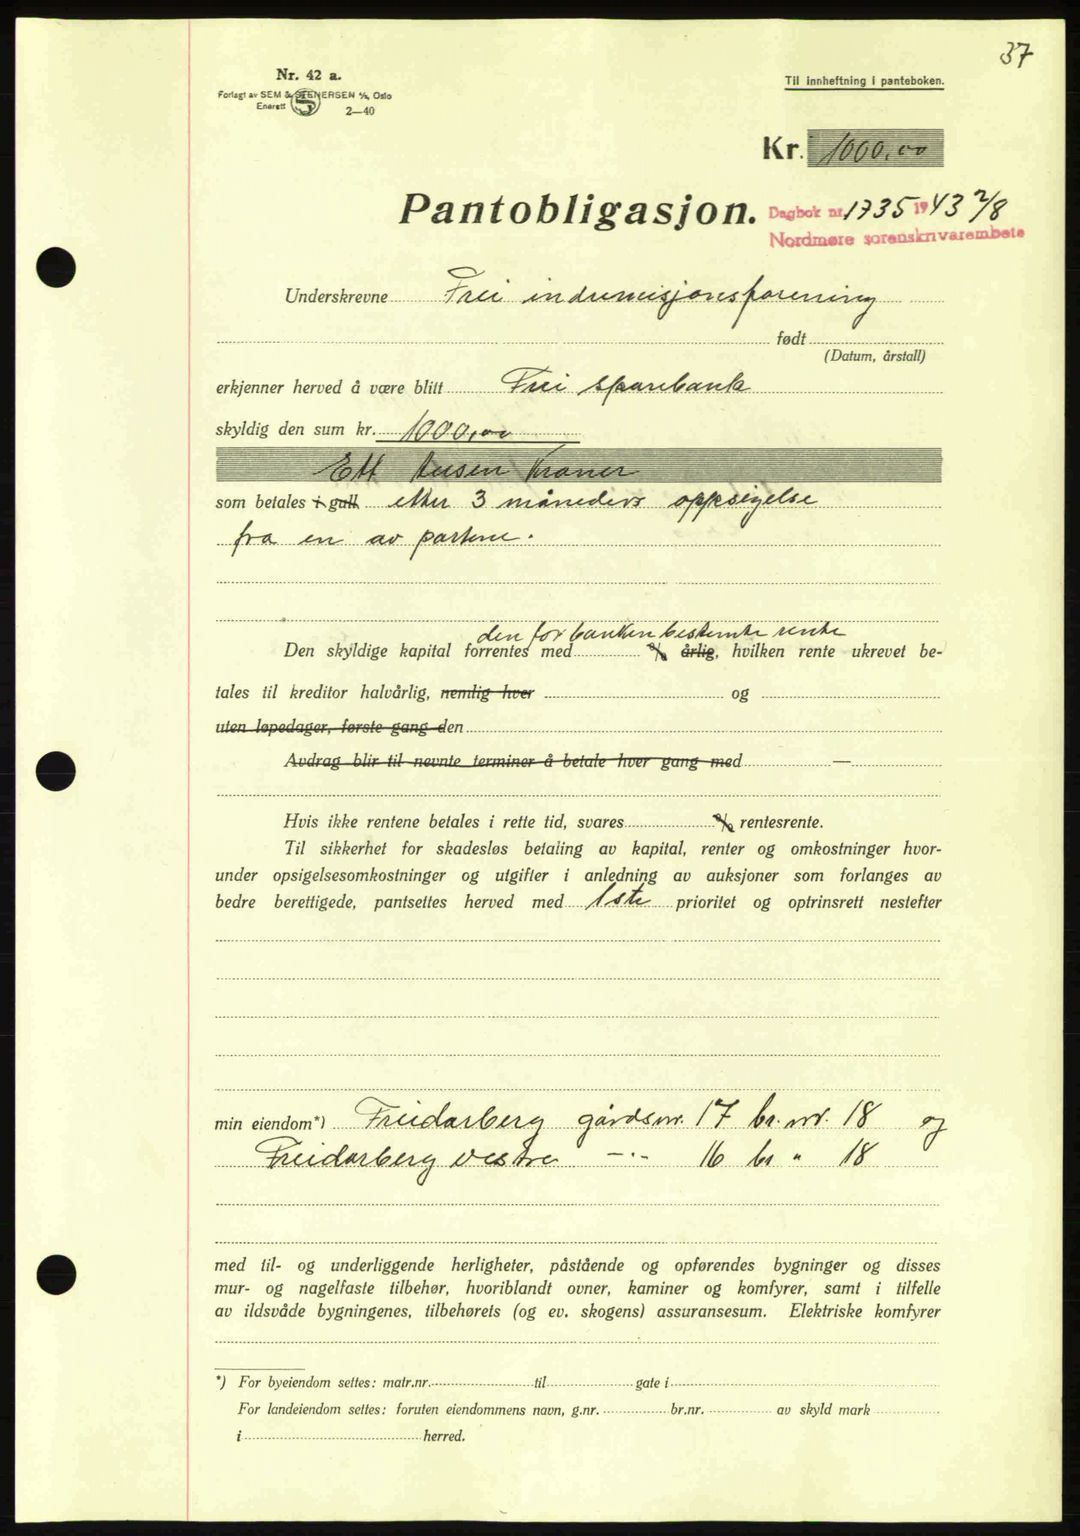 37
Nr. 42 a.
Forlagt av SEM & STENERSEN A/S, Oslo
Enerett
2—40
Til innheftning i panteboken.
Kr. 1000,00
Pantobligasjon.
Dagbok nr. 1735 1943 2/8
Nordmøre sorenskrivarembete
Underskrevne Frei indremisjonsforening
født
(Datum, årstall)
erkjenner herved å være blitt Frei sparebank
skyldig den sum kr. 1000,00
Ett tusen kroner
som betales i gull etter 3 måneders oppsigelse
fra en av partene.
den for banken bestemte rente
Den skyldige kapital forrentes med % årlig, hvilken rente ukrevet be-
tales til kreditor halvårlig, nemlig hver og
uten løpedager, første gang den
Avdrag blir til nevnte terminer å betale hver gang med —
Hvis ikke rentene betales i rette tid, svares % rentesrente.
Til sikkerhet for skadesløs betaling av kapital, renter og omkostninger hvor-
under opsigelsesomkostninger og utgifter i anledning av auksjoner som forlanges av
bedre berettigede, pantsettes herved med 1ste prioritet og optrinsrett nestefter
min eiendom*) Freidarberg gårdsnr. 17 br. nr. 18 og
Freidarberg vestre -"- 16 br " 18
med til- og underliggende herligheter, påstående og opførendes bygninger og disses
mur- og nagelfaste tilbehør, hvoriblandt ovner, kaminer og komfyrer, samt i tilfelle
av ildsvåde bygningenes, tilbehørets (og ev. skogens) assuransesum. Elektriske komfyrer
*) For byeiendom settes: matr.nr. til gate i
For landeiendom settes: foruten eiendommens navn, g.nr. br.nr. av skyld mark
i herred.